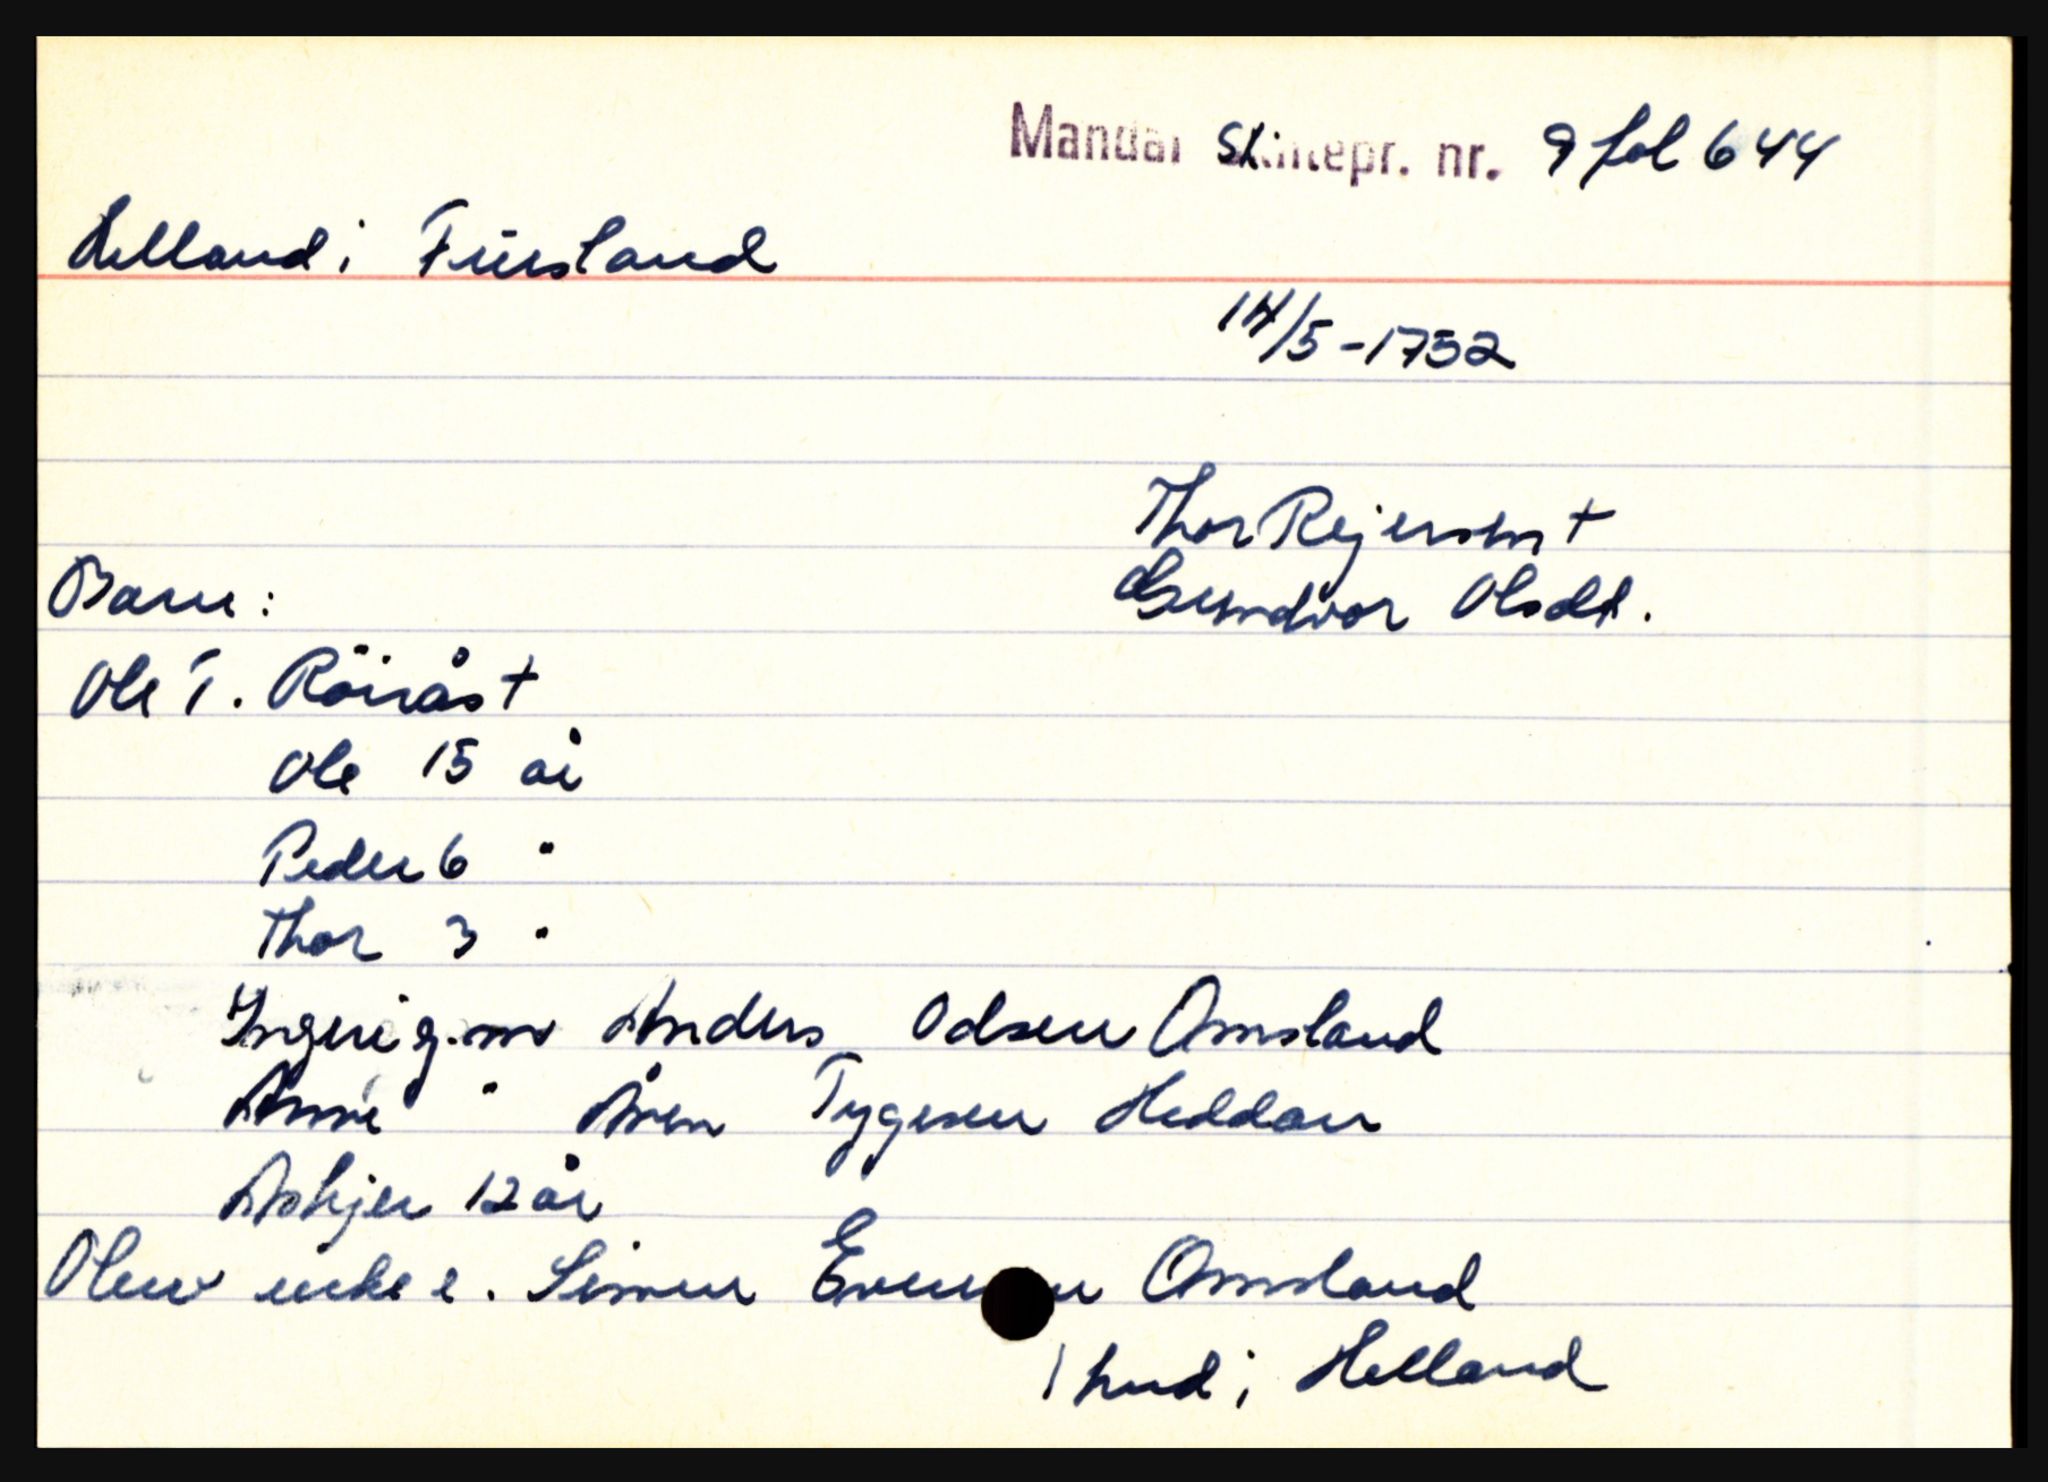 Mandal Skiftepr. nr. 9 fol 644
Helland i Finsland
14/5-1752
Thor Rejersen +
Gundvor Olsdt.
Barn:
Ole T. Röirås +
Ole 15 år
Peder 6 "
Thor 3 "
Ingeri g.m. Anders Odsen Omsland
Anne " Aven Tygesen Heddan
Askjer 12 år
Olene enke e. Simen Evensen Omsland
1 hud i Helland